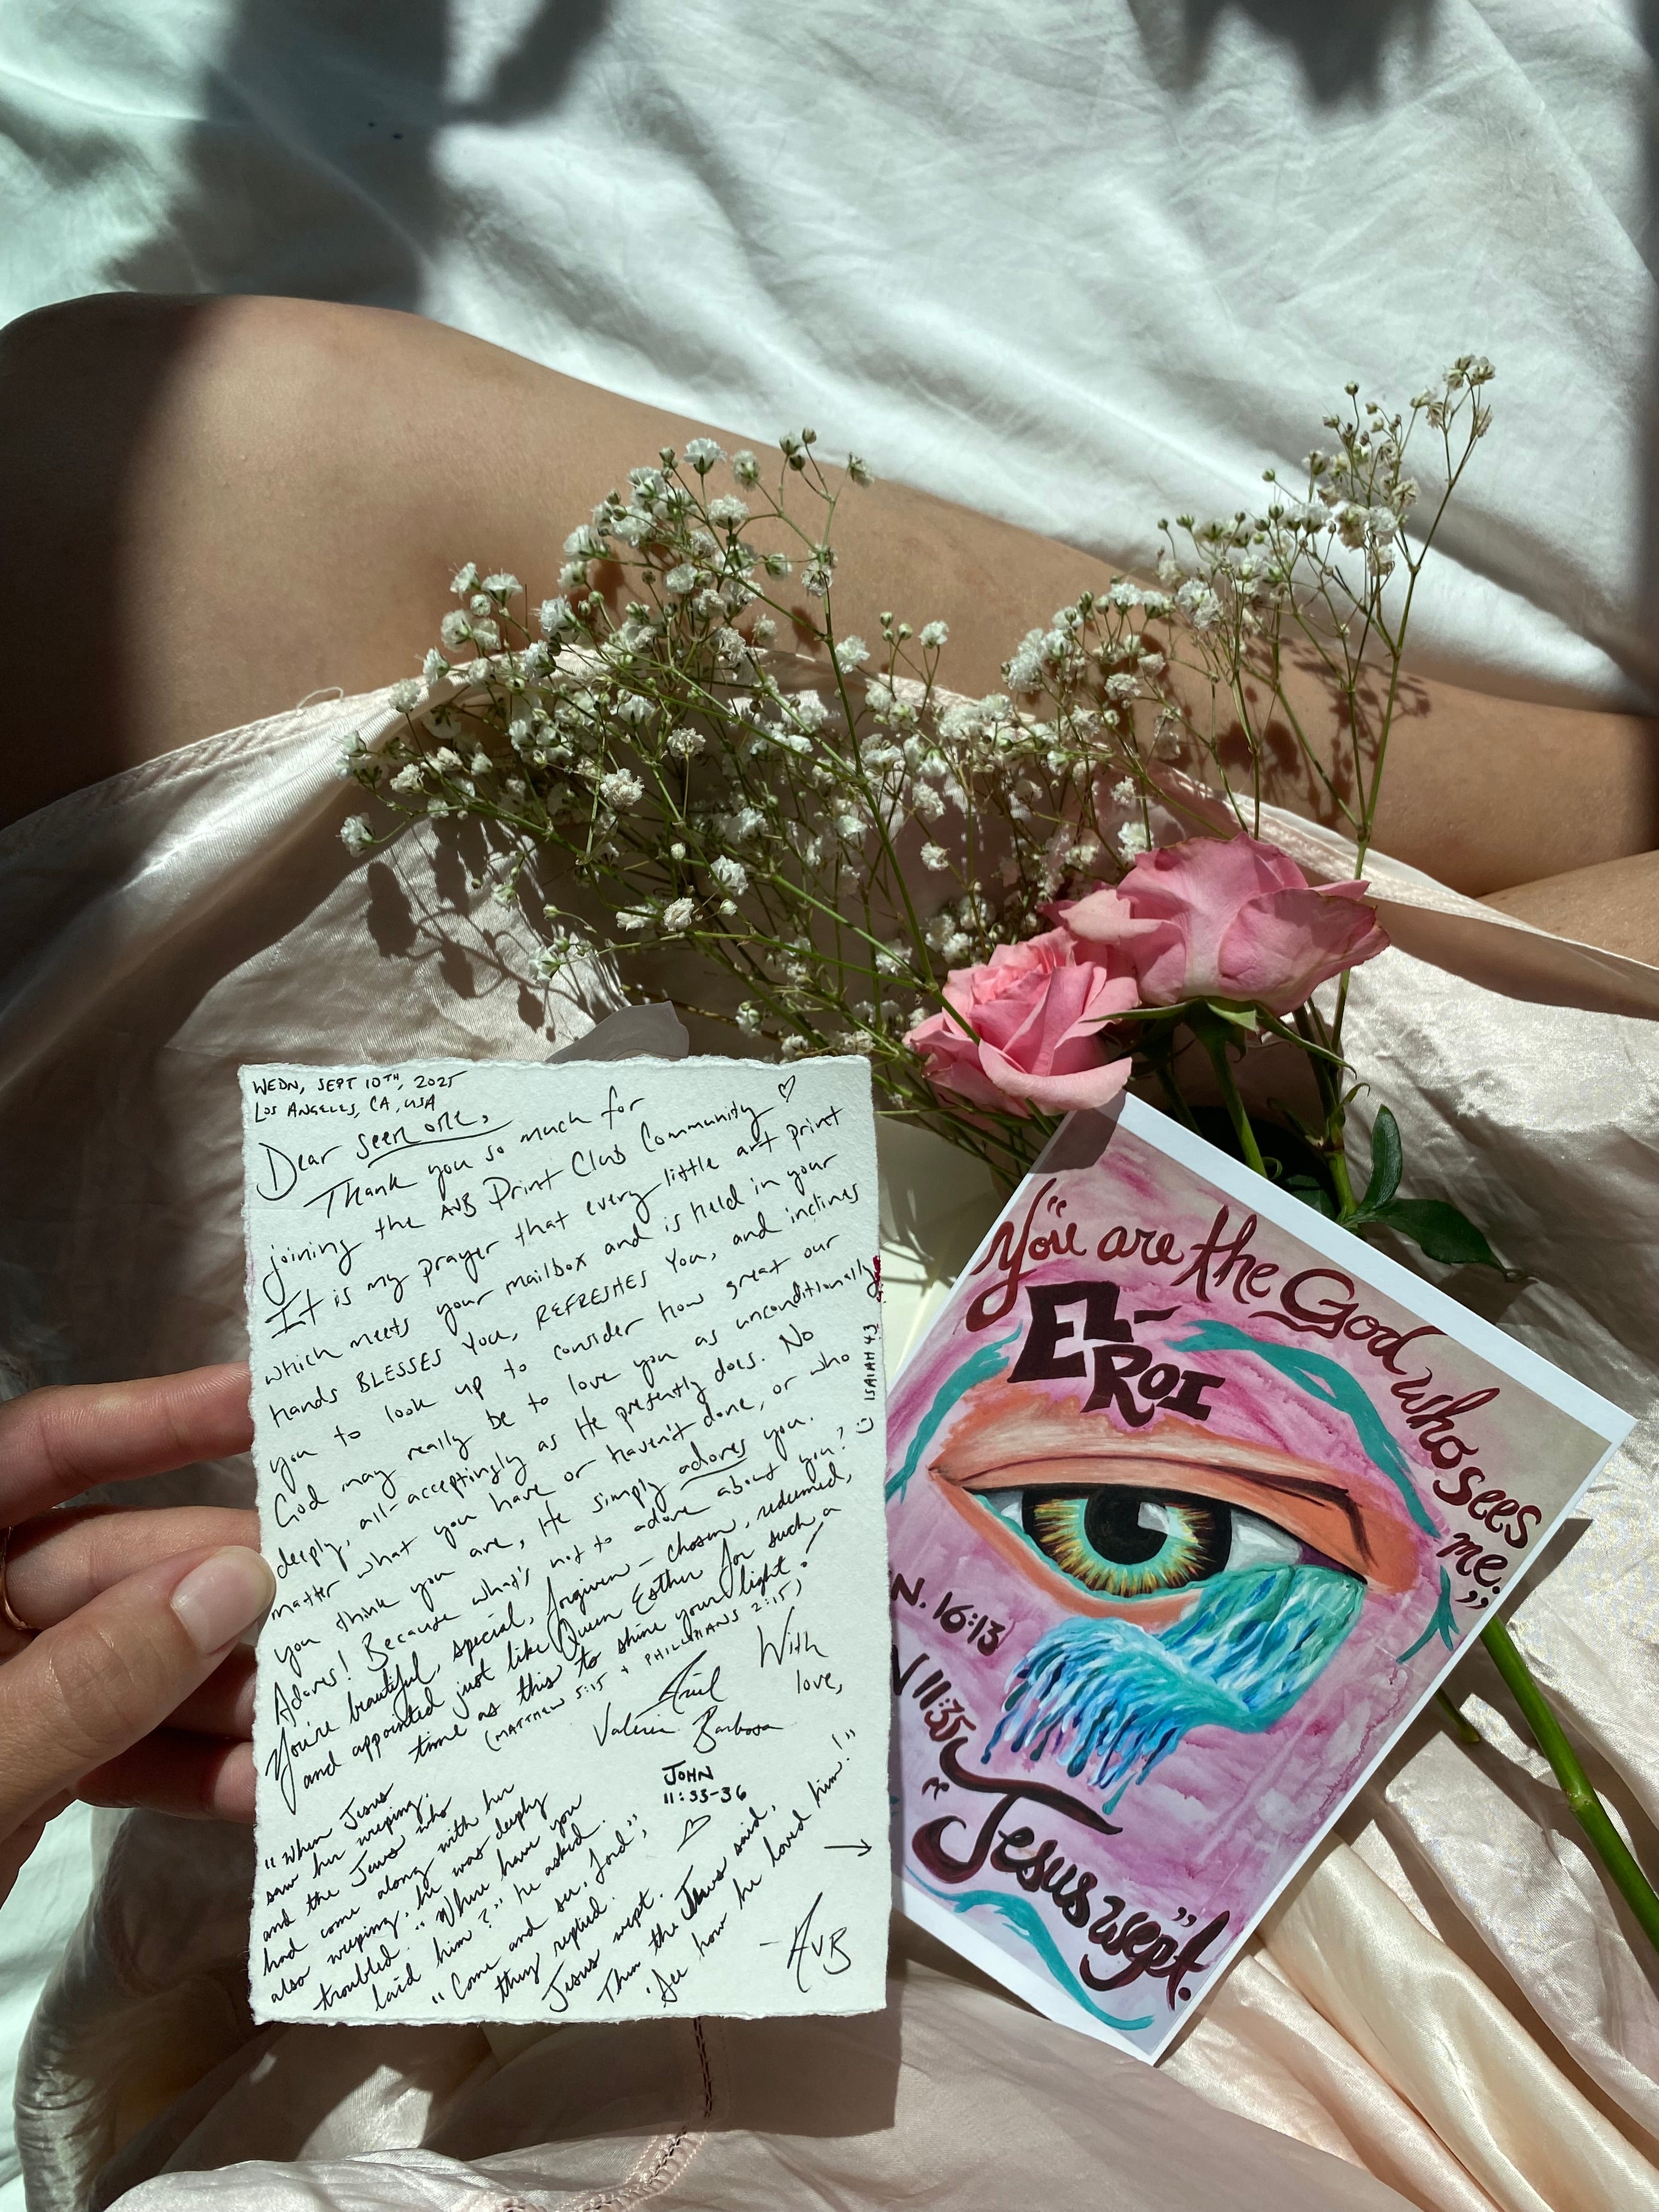 WEDN, SEPT 10TH, 2025
LOS ANGELES, CA, USA
Dear seen one,
Thank you so much for
joining the AVB Print Club Community ♡
It is my prayer that every little art print
which meets your mailbox and is held in your
hands BLESSES YOU, REFRESHES YOU, and inclines
you to look up to consider how great our
God may really be to love you as unconditionally,
deeply, all-acceptingly as He presently does. No
matter what you have or haven't done, or who
you think you are, He simply adores you.
Adores! Because what's not to adore about you? :)
ISAIAH 43
You're beautiful, special, forgiven - chosen, redeemed,
and appointed just like Queen Esther for such a
time as this to shine your light!
(MATTHEW 5:15 + PHILLIPIANS 2:15)
With
love,
Ariel
Valeria Barbosa
"When Jesus
saw her weeping,
and the Jews who
had come along with her
also weeping, he was deeply
troubled. "Where have you
laid him?" he asked.
"Come and see, Lord,"
they replied.
Jesus wept.
Then the Jews said,
'See how he loved him!"
JOHN
11:33-36
♡
→
-AVB
"You are the God who sees
me."
EL-
ROI
N. 16:13
11:35
"Jesus wept."